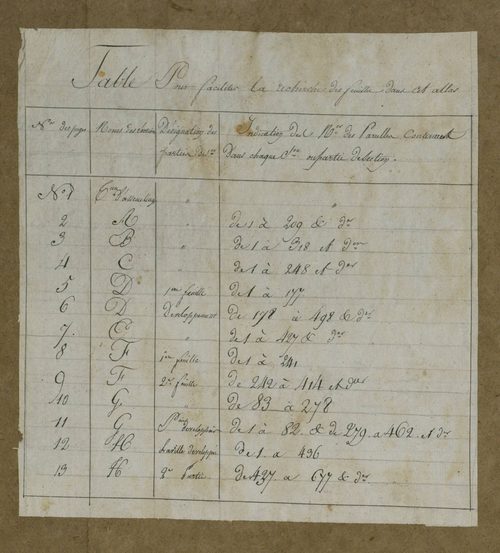 Table Pour faciliter la recherche des feuilles dans cet atlas
Nos des pages Noms des sections Désignation des parties de son Indication des Nos des Parcelles contenues dans chaque Son ou partie de Section.
No 1 d'assemblage "
2 A " de 1 à 209 & der
3 B " de 1 à 318 et der
4 C " de 1 à 248 et der
5 D 1ere feuille de 1 à 177
6 D Développement de 178 à 498 & der
7 E " de 1 à 427 & der
8 F 1ere feuille de 1 à 241
9 F 2e feuille de 242 à 414 et der
10 G " de 83 à 278
11 G développem de 1 à 82 & de 279 a 462 et der
12 H feuille développe de 1 a 436
13 H 2e Partie de 437 a 677 & der